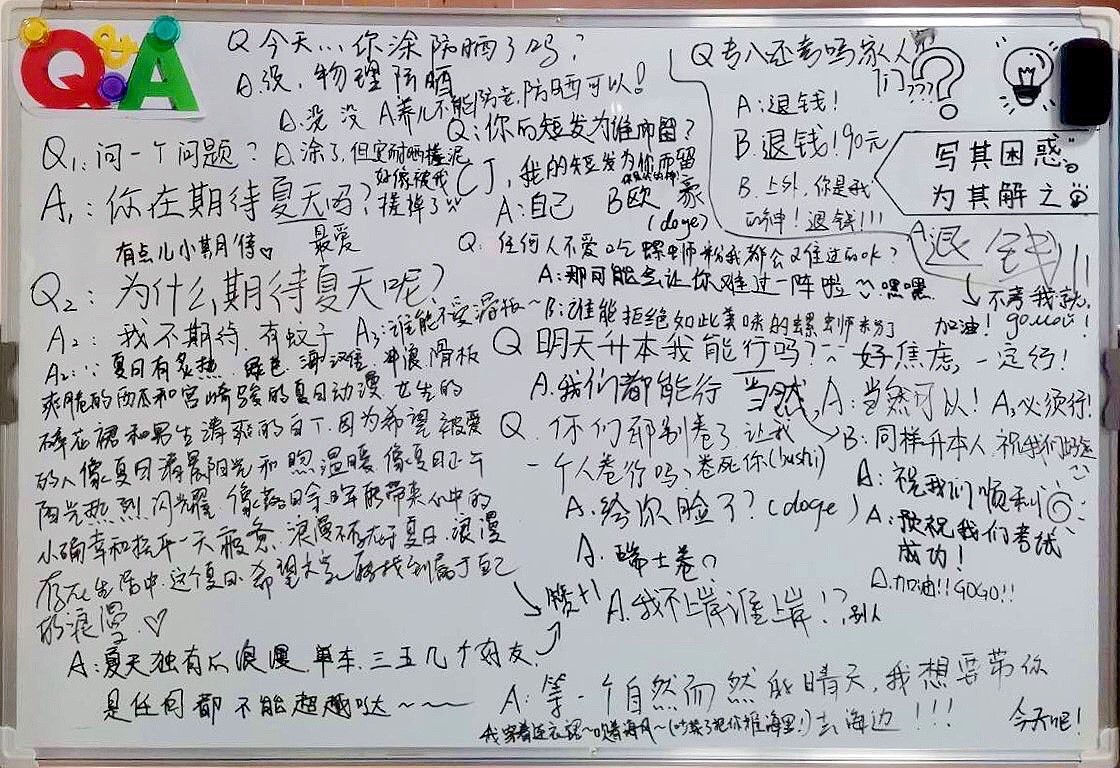 Q&A
Q 今天…你涂防晒了吗?
A.没,物理防晒
A.没 没 A养儿不能防老,防晒可以!
A.涂了,但
好像被我
搓掉了
Q1:问一个问题?
A1:你在期待夏天吗?
有点儿小期待♡
最爱
Q:你的短发为谁而留?
CJ,我的短发为你而留
A:自己 B欧豪
(doge)
Q专八还考吗家人
们???
A:退钱!
B.退钱!90元
B.上外,你是我
的神!退钱!!!
A:退钱!!!
不考我就
加油!
写其困惑。
为其解之
Q:任何人不爱吃螺蛳粉我都会
A:那可能会让你难过一阵啦 嘿嘿
B:谁能拒绝如此美味的螺蛳粉
Q2:为什么期待夏天呢?
A2:我不期待,有蚊子 A3:谁能不爱滑板~
A2:∵夏日有炙热、绿色、海洋、冲浪、滑板
爽脆的西瓜和宫崎骏的夏日动漫 女生的
碎花裙和男生清爽的白T.因为希望被爱
的人像夏日清晨阳光和煦温暖 像夏日正午
阳光热烈闪耀 像落日余晖能带来心中的
小确幸和抚平一天疲惫.浪漫不存在于夏日.浪漫
存在生活中.这个夏日.希望大家能找到属于自己
的浪漫.♡
赞+1
A:夏天独有的浪漫 单车.三五几个好友.
是任何都不能超越哒~~~
Q 明天升本我能行吗? 好焦虑,一定行!
A.我们都能行 当然.A:当然可以! A:必须行!
B:同样升本人 祝我们好运
A:祝我们顺利
A:预祝我们考试
成功!
A.加油!!GOGO!!
Q.你们都别卷了 让我
一个人卷行吗、卷死你(bushi)
A.给你脸了?(doge)
A:瑞士卷?
A.我不上岸谁上岸!? 别人
A:等一个自然而然的晴天,我想要带你
去海边!!!
我穿着连衣裙~吹着海风~(吵架了把你推海里!)
今天吧!